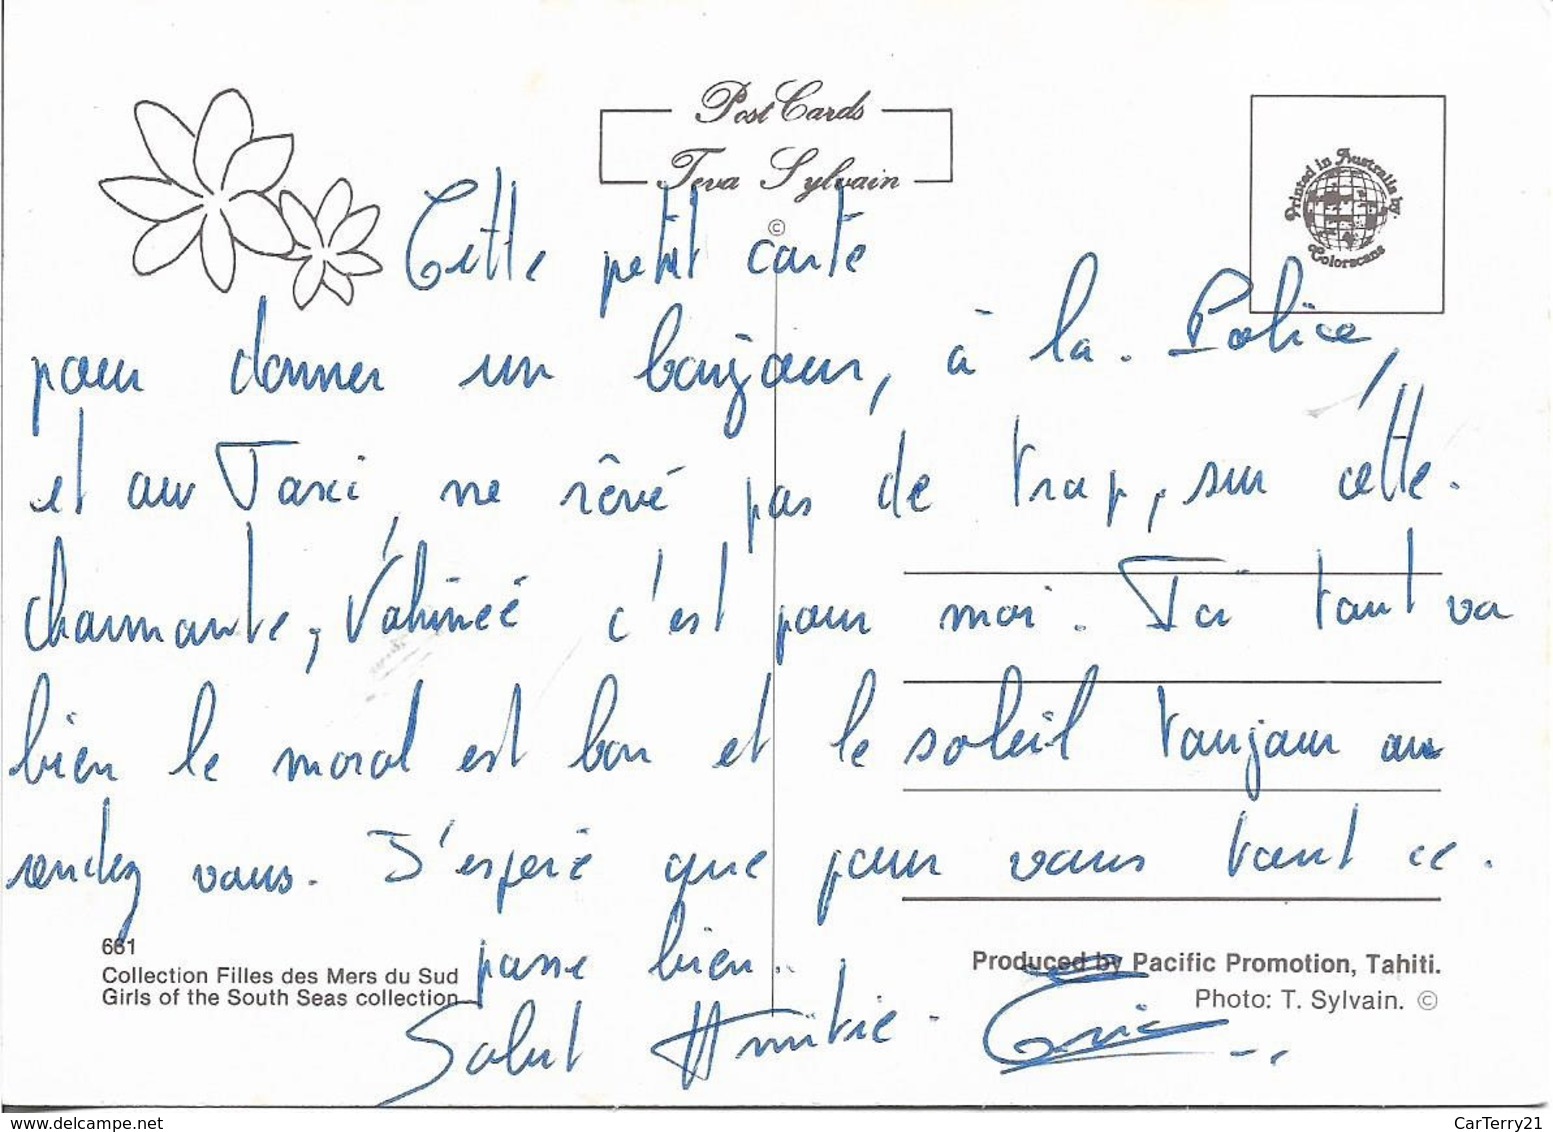 Post Cards
Teva Sylvain
©
Printed in Australia by
Colorscans
Cette petit carte
pour donner un bonjour, à la. Police,
et au Taxi, ne rêvé pas de trop, sur cétte.
charmante, Vahineé c'est pour moi. Ici tout va
bien le moral est bon et le soleil toujour au
rendez vous. J'esperé que pour vous tout ce.
passe bien.
Salut Amitié. Eric
661
Collection Filles des Mers du Sud
Girls of the South Seas collection
Produced by Pacific Promotion, Tahiti.
Photo: T. Sylvain. ©
www.delcampe.net
CarTerry21